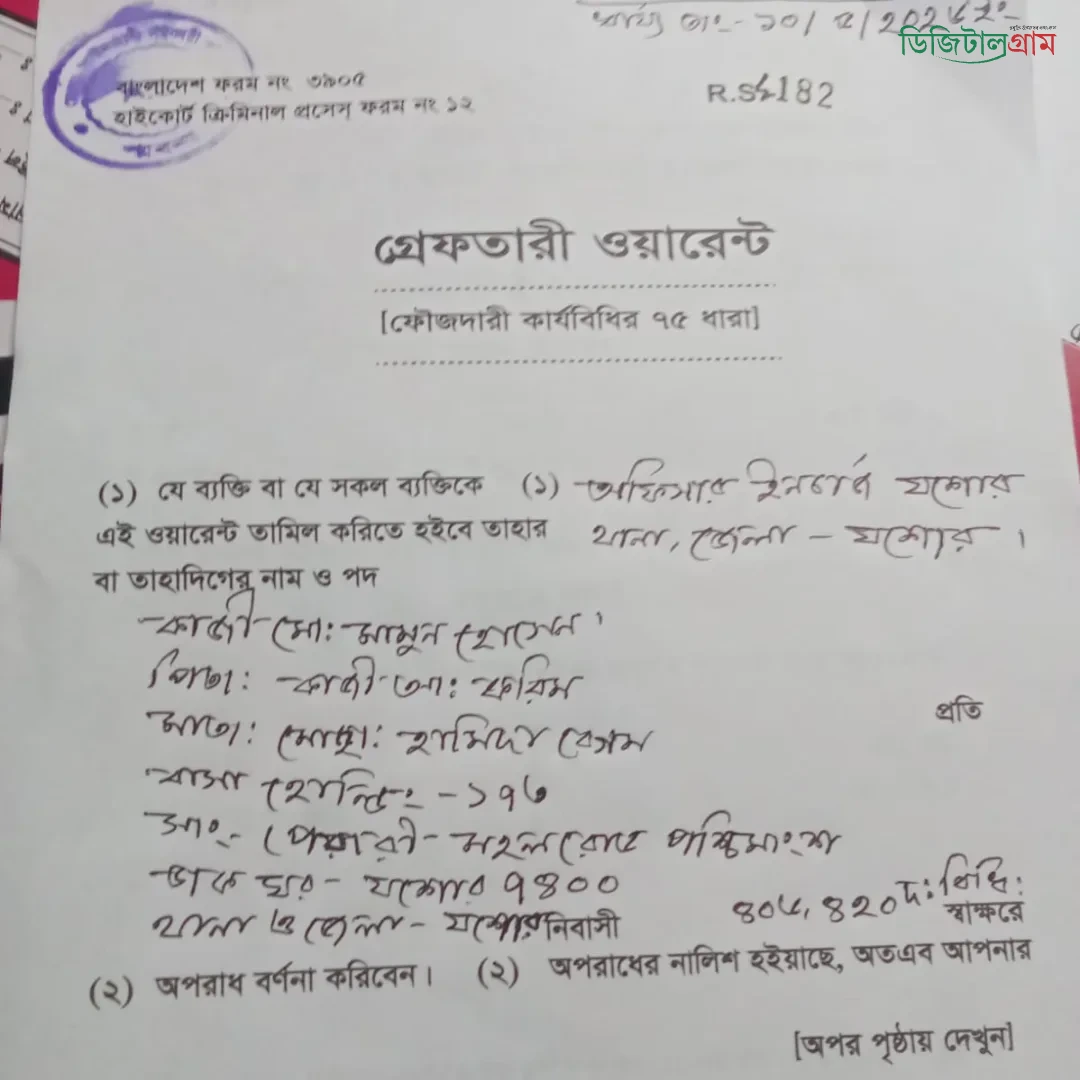 ধার্য্য তাং- ১০/ ৫/২০২৬ ইং-
ডিজিটালগ্রাম
বাংলাদেশ ফরম নং ৩৯০৫
হাইকোর্ট ক্রিমিনাল প্রসেস ফরম নং ১২
182
গ্রেফতারী ওয়ারেন্ট
[ফৌজদারী কার্যবিধির ৭৫ ধারা]
(১) যে ব্যক্তি বা যে সকল ব্যক্তিকে (১) অফিসার ইনচার্জ যশোর
এই ওয়ারেন্ট তামিল করিতে হইবে তাহার থানা, জেলা - যশোর।
বা তাহাদিগের নাম ও পদ
কাজী মো: মামুন হোসেন।
পিতা: কাজী আ: করিম
মাতা: মোছা: হামিদা বেগম
প্রতি
বাসা হোল্ডিং - ১৭৬
সাং- রোড পশ্চিমাংশ
ডাক ঘর- যশোর ৭৪০০
৪০৬, ৪২০ দ: বিধি:
থানা ও জেলা - যশোর নিবাসী স্বাক্ষরে
(২) অপরাধ বর্ণনা করিবেন। (২) অপরাধের নালিশ হইয়াছে, অতএব আপনার
[অপর পৃষ্ঠায় দেখুন]